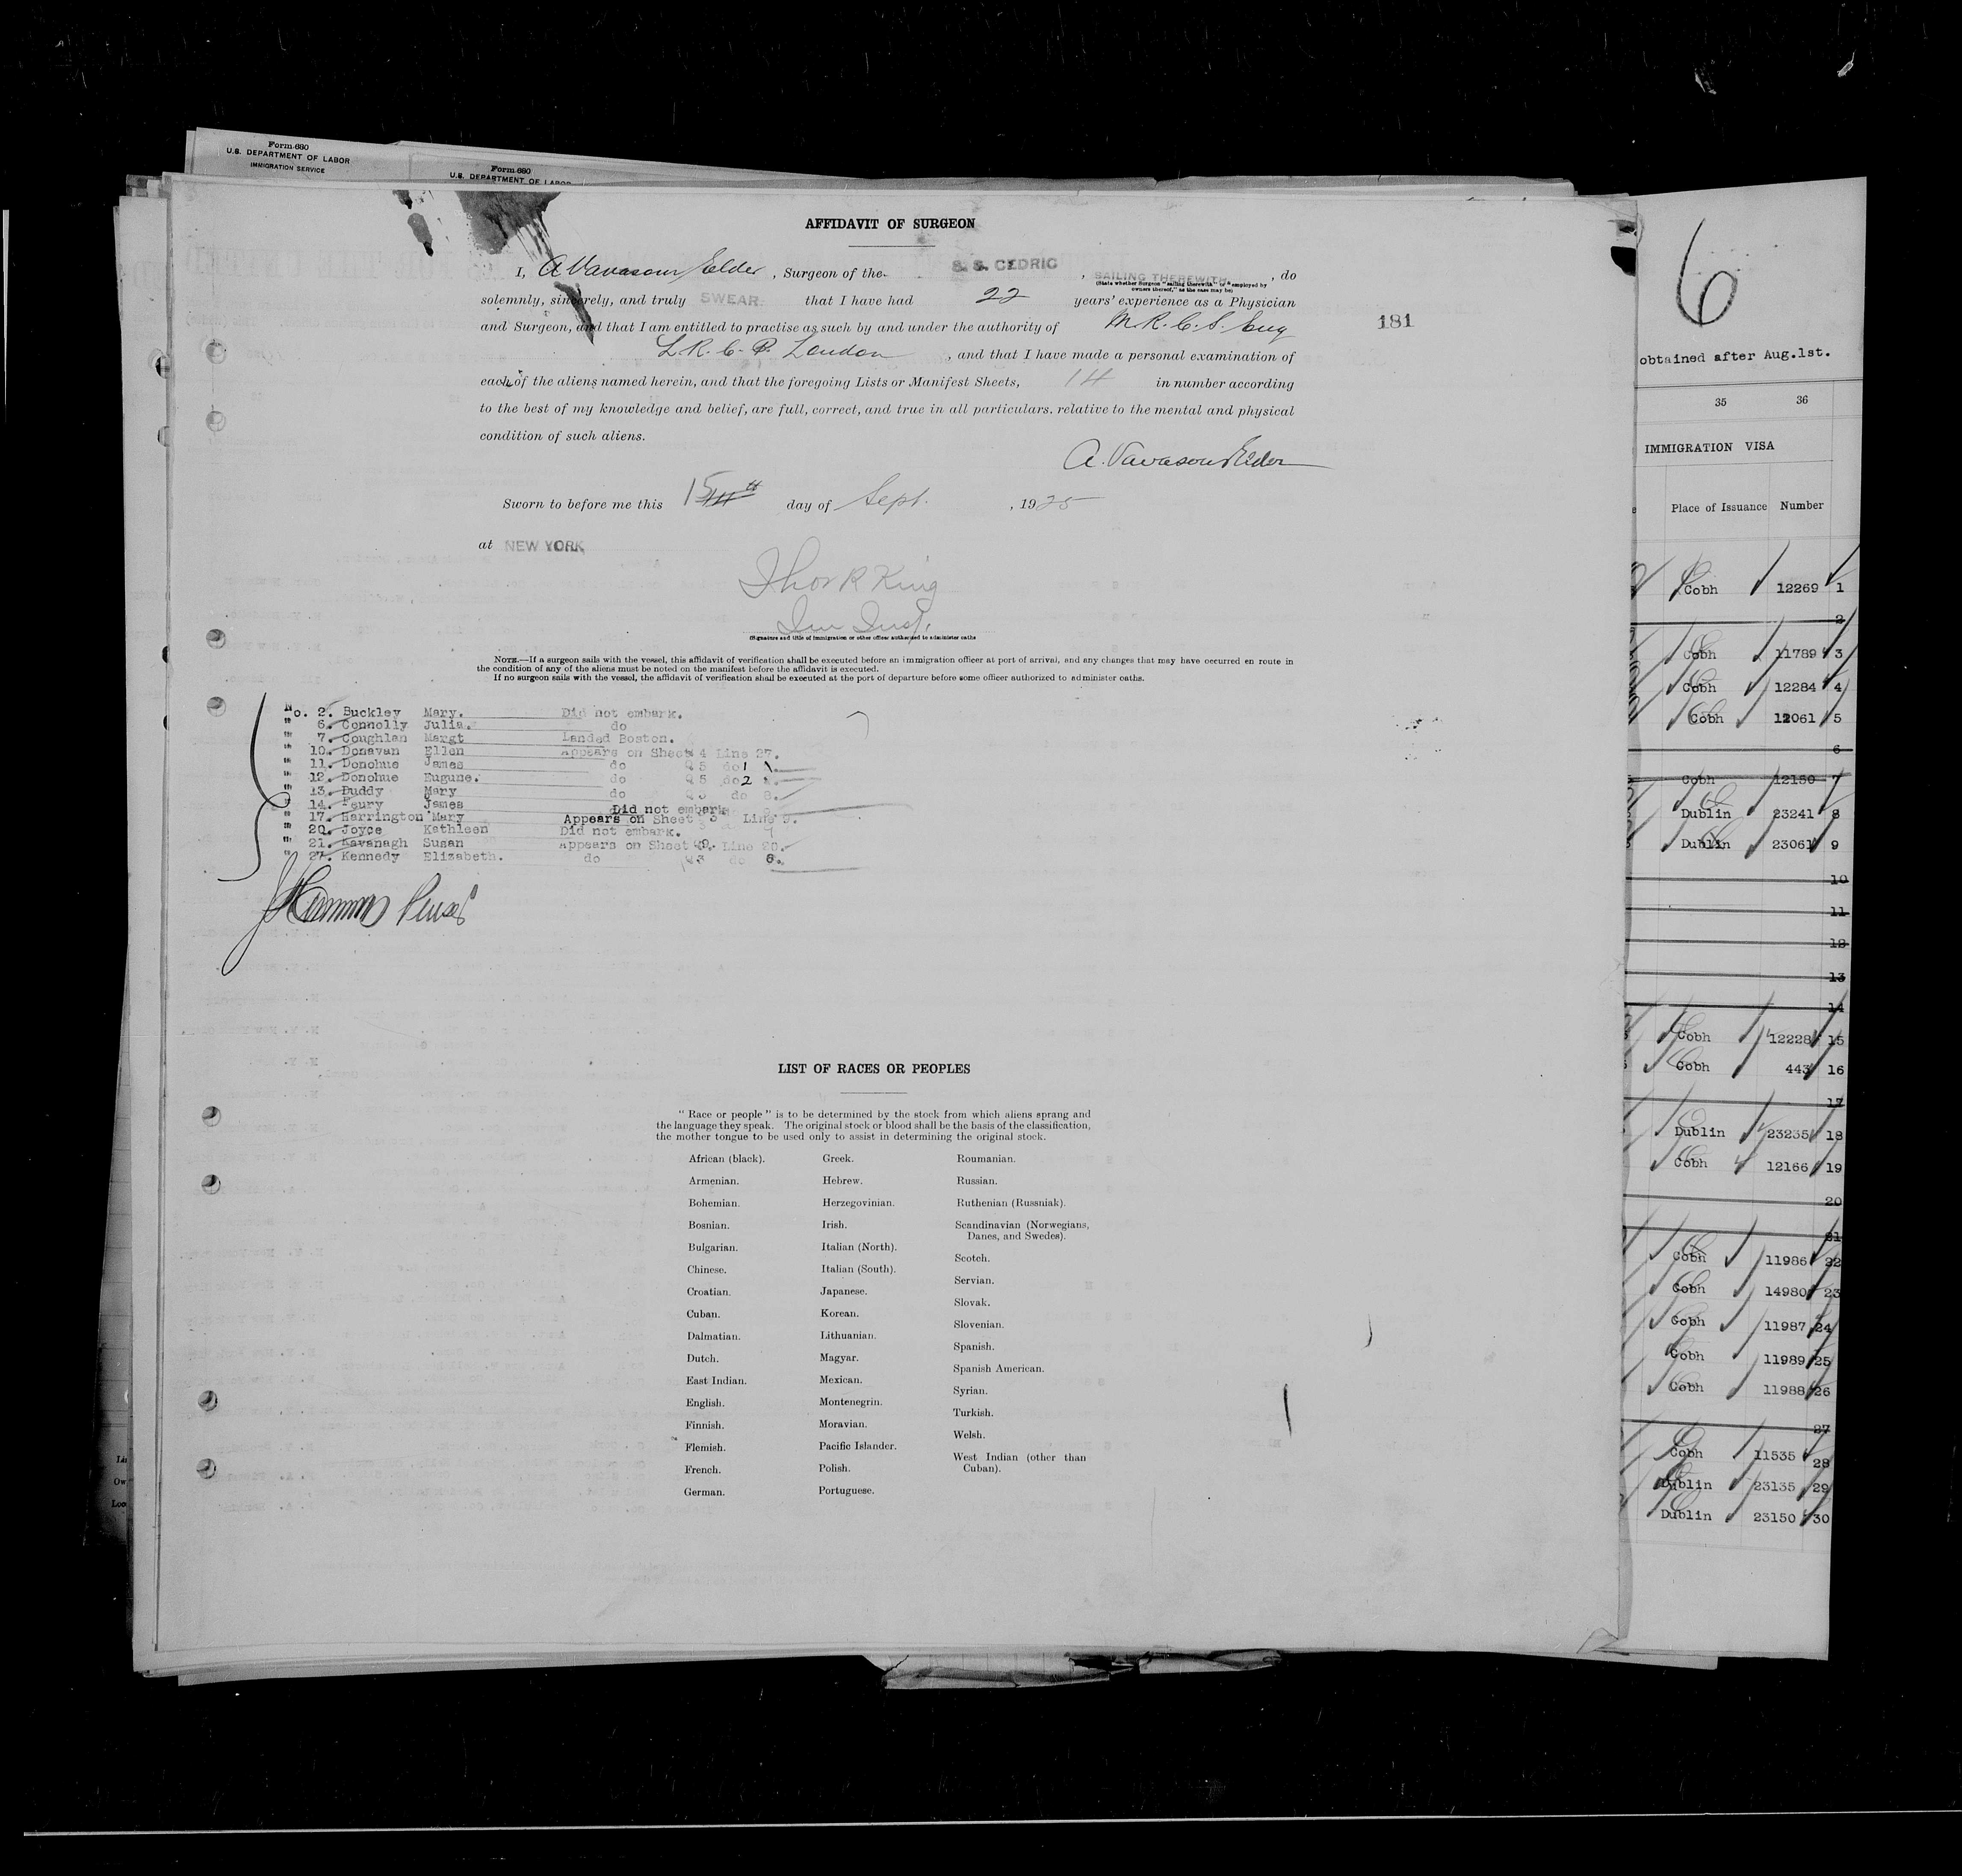 Form 680
U.S. DEPARTMENT OF LABOR
IMMIGRATION SERVICE
Form 680
U.S. DEPARTMENT OF LABOR
AFFIDAVIT OF SURGEON
I, A Vavasour Elder, Surgeon of the S. S. CEDRIC, SAILING THEREWITH, do
(State whether Surgeon "sailing therewith" or "employed by
owners thereof," as the case may be)
solemnly, sincerely, and truly SWEAR that I have had 22 years' experience as a Physician
and Surgeon, and that I am entitled to practise as such by and under the authority of M.R.C.S. Eng
181
L.R.C.P. London, and that I have made a personal examination of
each of the aliens named herein, and that the foregoing Lists or Manifest Sheets, 14 in number according
to the best of my knowledge and belief, are full, correct, and true in all particulars, relative to the mental and physical
condition of such aliens.
A. Vavasour Elder
Sworn to before me this 15th day of Sept., 1925
at NEW YORK
Thos R King
Im Insp.
(Signature and title of immigration or other officer authorized to administer oaths
NOTE.—If a surgeon sails with the vessel, this affidavit of verification shall be executed before an immigration officer at port of arrival, and any changes that may have occurred en route in
the condition of any of the aliens must be noted on the manifest before the affidavit is executed.
If no surgeon sails with the vessel, the affidavit of verification shall be executed at the port of departure before some officer authorized to administer oaths.
No. 2. Buckley Mary. Did not embark.
" 6. Connolly Julia. do
" 7. Coughlan Margt Landed Boston.
" 10. Donavan Ellen Appears on Sheet 4 Line 27.
" 11. Donohue James do 5 do 1
" 12. Donohue Eugune. do 5 do 2
" 13. Duddy Mary do 3 do 8.
" 14. Feury James Did not embark
" 17. Harrington Mary Appears on Sheet 3 Line 9.
" 20. Joyce Kathleen Did not embark.
" 21. Kavanagh Susan Appears on Sheet Line
" 27. Kennedy Elizabeth. do 3 do 6.
LIST OF RACES OR PEOPLES
" Race or people " is to be determined by the stock from which aliens sprang and
the language they speak. The original stock or blood shall be the basis of the classification,
the mother tongue to be used only to assist in determining the original stock.
African (black).
Armenian.
Bohemian.
Bosnian.
Bulgarian.
Chinese.
Croatian.
Cuban.
Dalmatian.
Dutch.
East Indian.
English.
Finnish.
Flemish.
French.
German.
Greek.
Hebrew.
Herzegovinian.
Irish.
Italian (North).
Italian (South).
Japanese.
Korean.
Lithuanian.
Magyar.
Mexican.
Montenegrin.
Moravian.
Pacific Islander.
Polish.
Portuguese.
Roumanian.
Russian.
Ruthenian (Russniak).
Scandinavian (Norwegians,
Danes, and Swedes).
Scotch.
Servian.
Slovak.
Slovenian.
Spanish.
Spanish American.
Syrian.
Turkish.
Welsh.
West Indian (other than
Cuban).
6
obtained after Aug.1st.
35 36
IMMIGRATION VISA
Place of Issuance Number
Cobh 12269 1
2
Cobh 11789 3
Cobh 12284 4
Cobh 12061 5
6
Cobh 12150 7
Dublin 23241 8
Dublin 23061 9
10
11
12
13
14
Cobh 12228 15
Cobh 443 16
17
Dublin 23235 18
Cobh 12166 19
20
21
Cobh 11986 22
Cobh 14980 23
Cobh 11987 24
Cobh 11989 25
Cobh 11988 26
27
Cobh 11535 28
Dublin 23135 29
Dublin 23150 30